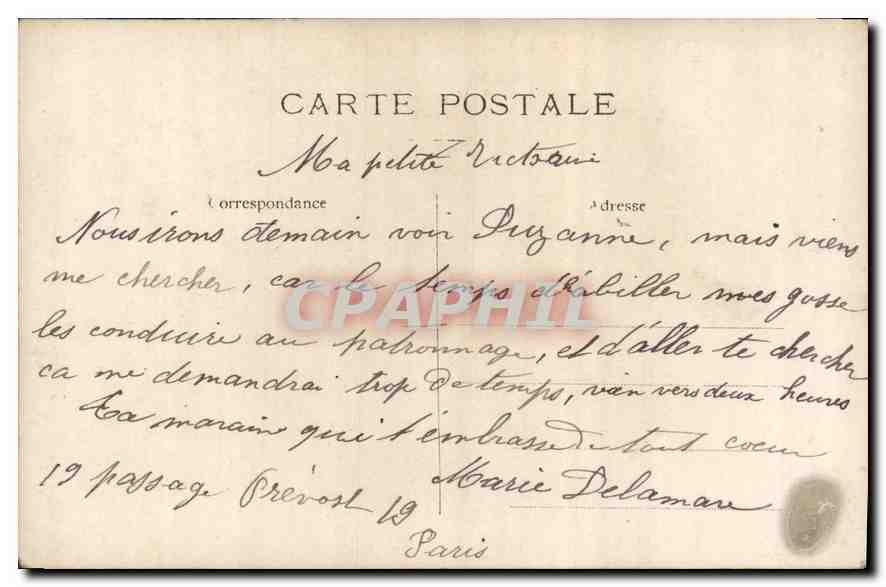 CARTE POSTALE
Ma petite
Correspondance
Adresse
Nous irons demain voir Suzanne, mais viens
me chercher, car le temps d'éabiller mes gosse
les conduire au patronnage, et d'aller te chercher
ca me demandrai trop de temps, vien vers deux heures
Ta maraine qui t'embrasse de tout coeur
Marie Delamare
19 passage Prévost 19
Paris
CPAPHIL